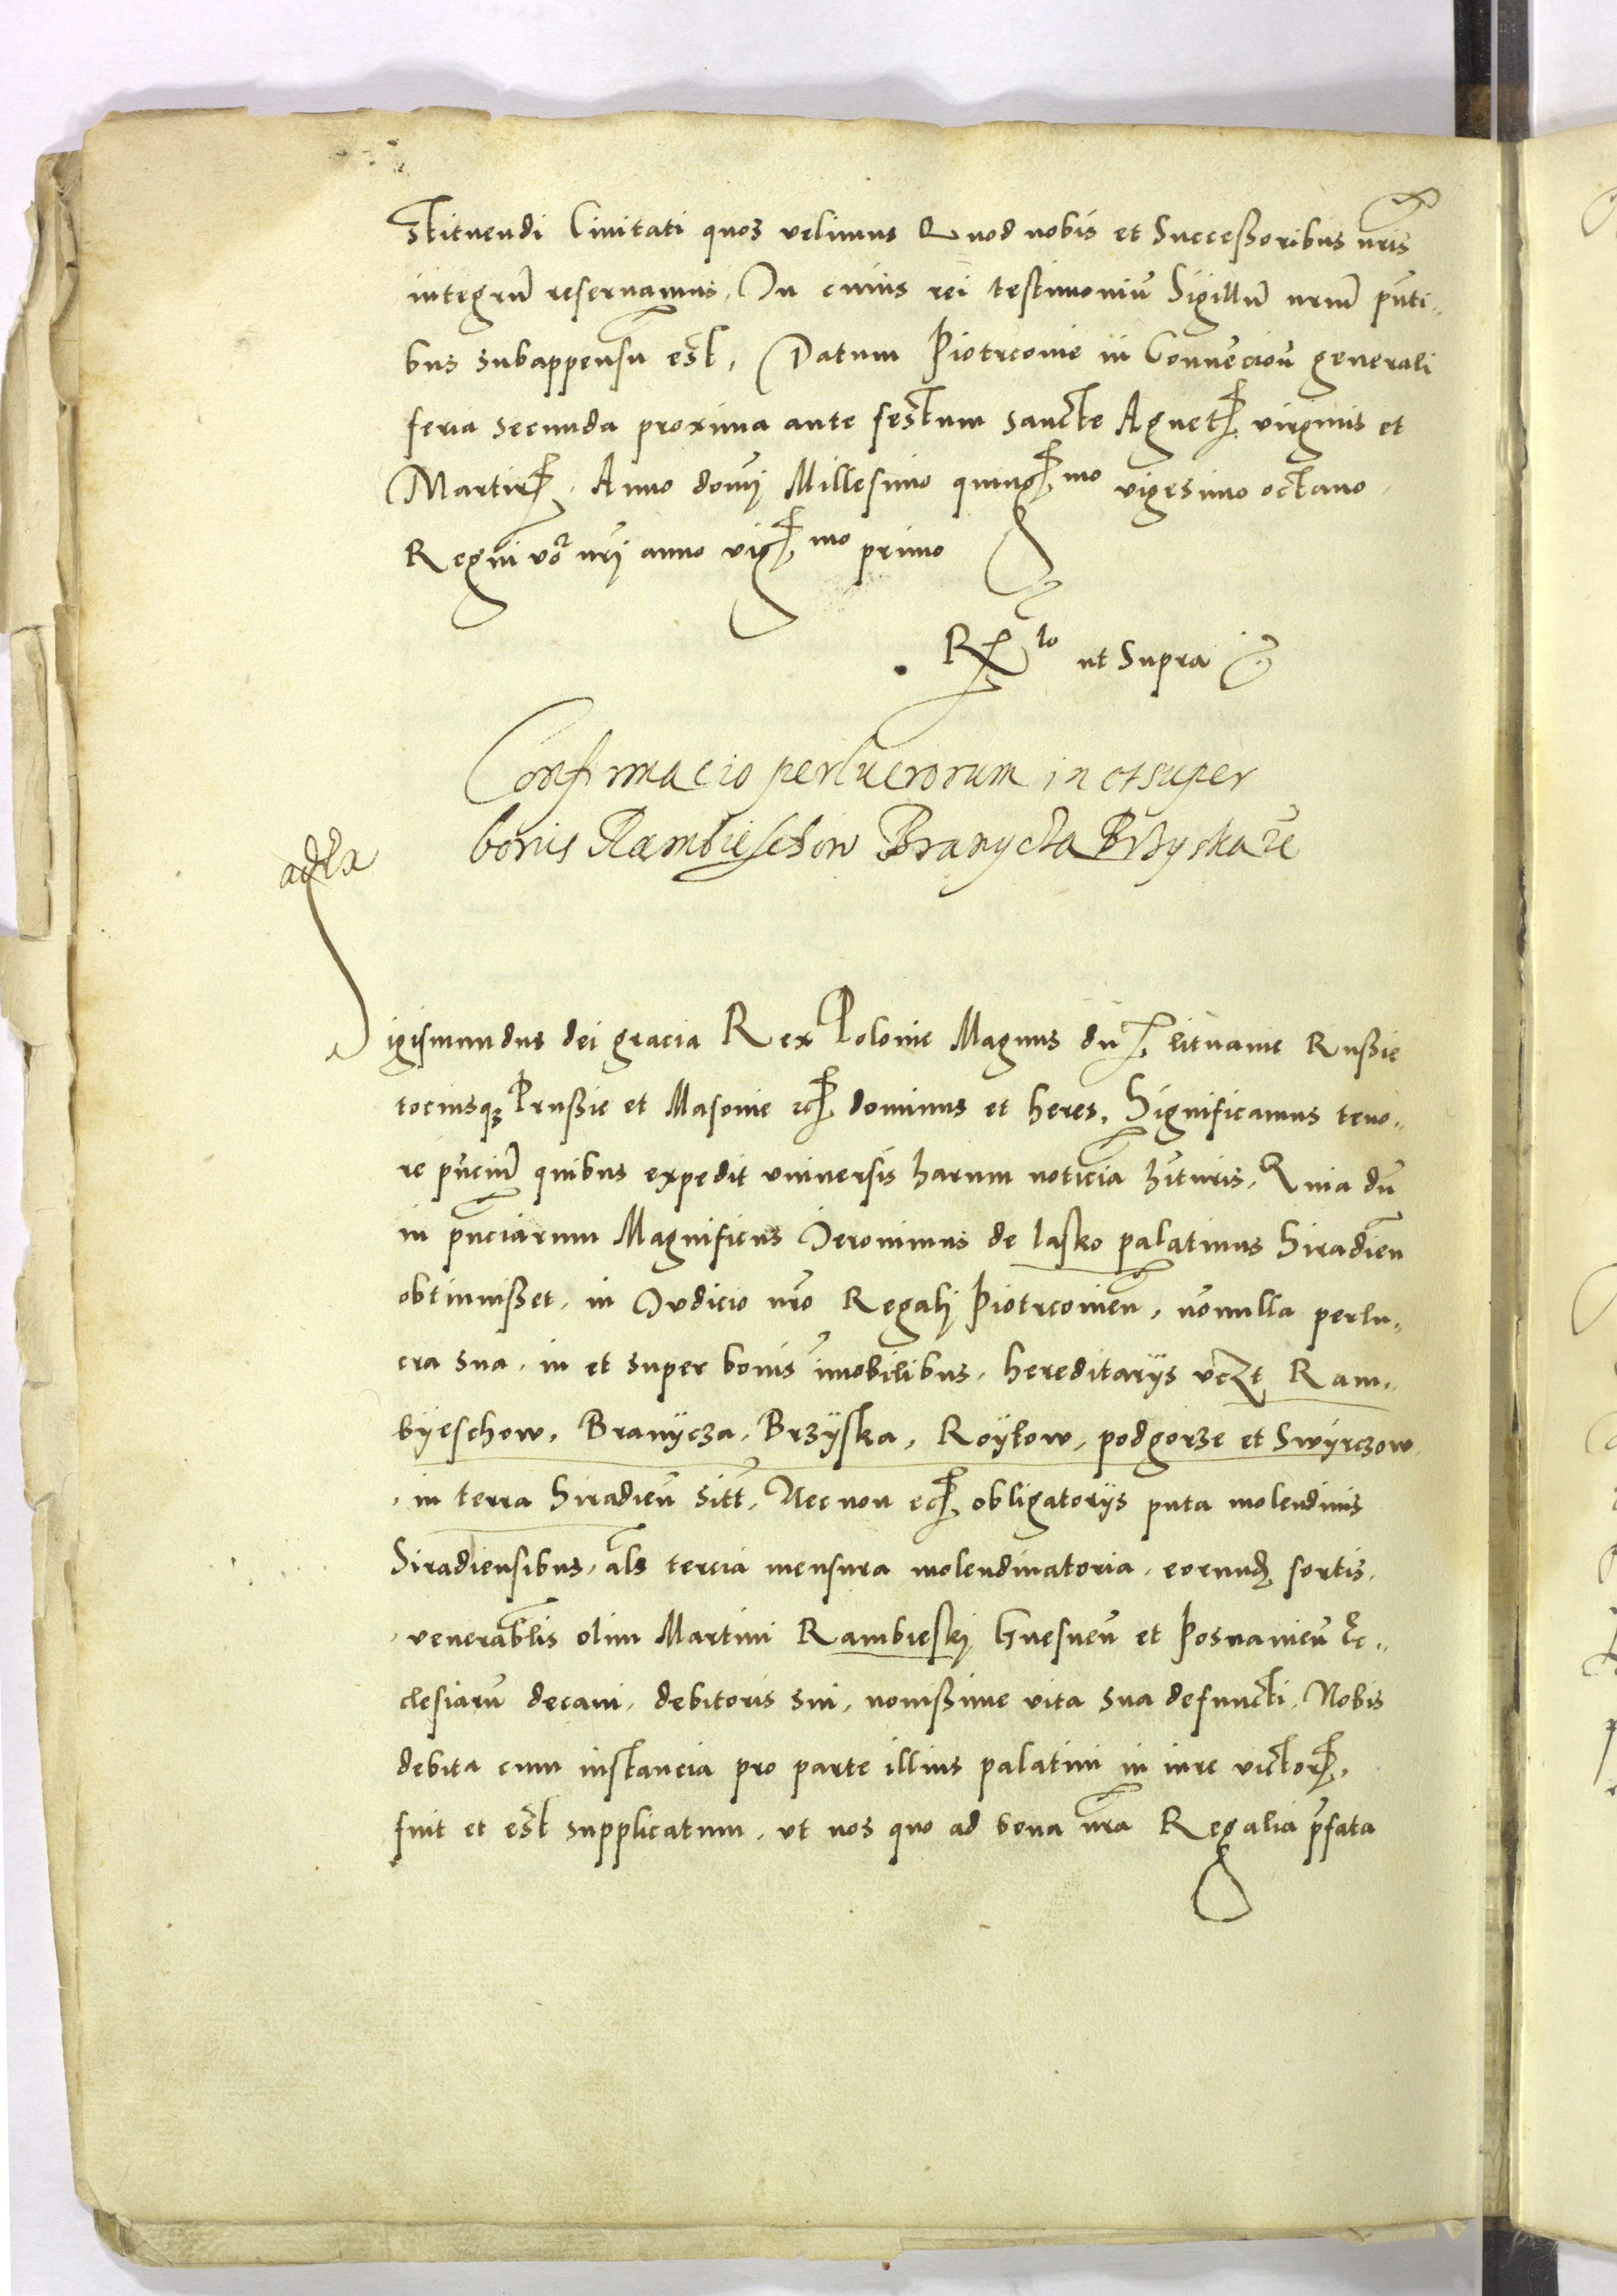 stituendi Civitati quos velimus Quod nobis et Successoribus nr̃is
integrũ reservamus. In cuius rei testimoniũ Sigillũ nrũm pñti„
bus subappensũ est. Datum Piotrconie in Convẽcioñ generali
feria secunda proxima ante festum sancte Agnetꝭ virginis et
Martirꝭ. Anno domĩ Millesimo quingꝭmo vigesimo octavo.
Regni võ nrĩ anno vigꝭmo primo
Rlo ut Supra
Confirmacio perlucrorum in et super
bonis Rambieschow Branycza Brzyska zc̃
Sigismundus dei gracia Rex Polonie Magnus dux lituanie Russie
tociusqꝫ Prussie et Masovie zcꝭ dominus et heres. Significamus teno„
re pñciũ quibus expedit universis harum noticiã hĩturis. Quia dũ
in pñciarum Magnificus Ieronimus de lasko palatinus Siradieñ
obtinuisset. in Iudicio nr̃o Regalj Piotrconieñ. nõnulla perlu„
cra sua. in et super bonis imobilibus. hereditarijs vczt Ram„
byeschow. Branÿcza. Brzÿska. Roÿkow. podgorze et Swÿrczow.
in terra Siradieñ sitt̃. Necnon ecꝭ obligatorijs puta molendinis
Siradiensibus. als tercia mensura molendinatoria. eorundẽ sortis.
venerablis olim Martini Rambieskj Gnesneñ et Posnanieñ Ec„
clesiarũ decani. debitoris sui. novissime vita sua defuncti. Nobis
debita cum instancia pro parte illius palatini in iure victorꝭ.
fuit et est supplicatum. ut nos quo ad bona nr̃a Regalia p̃fata